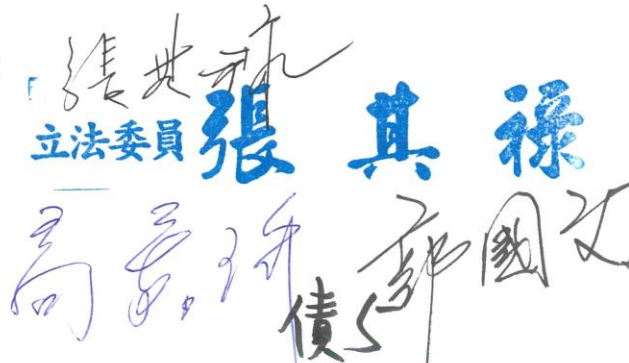 張其祿
立法委員 張其祿
高嘉瑜 郭國文
債5